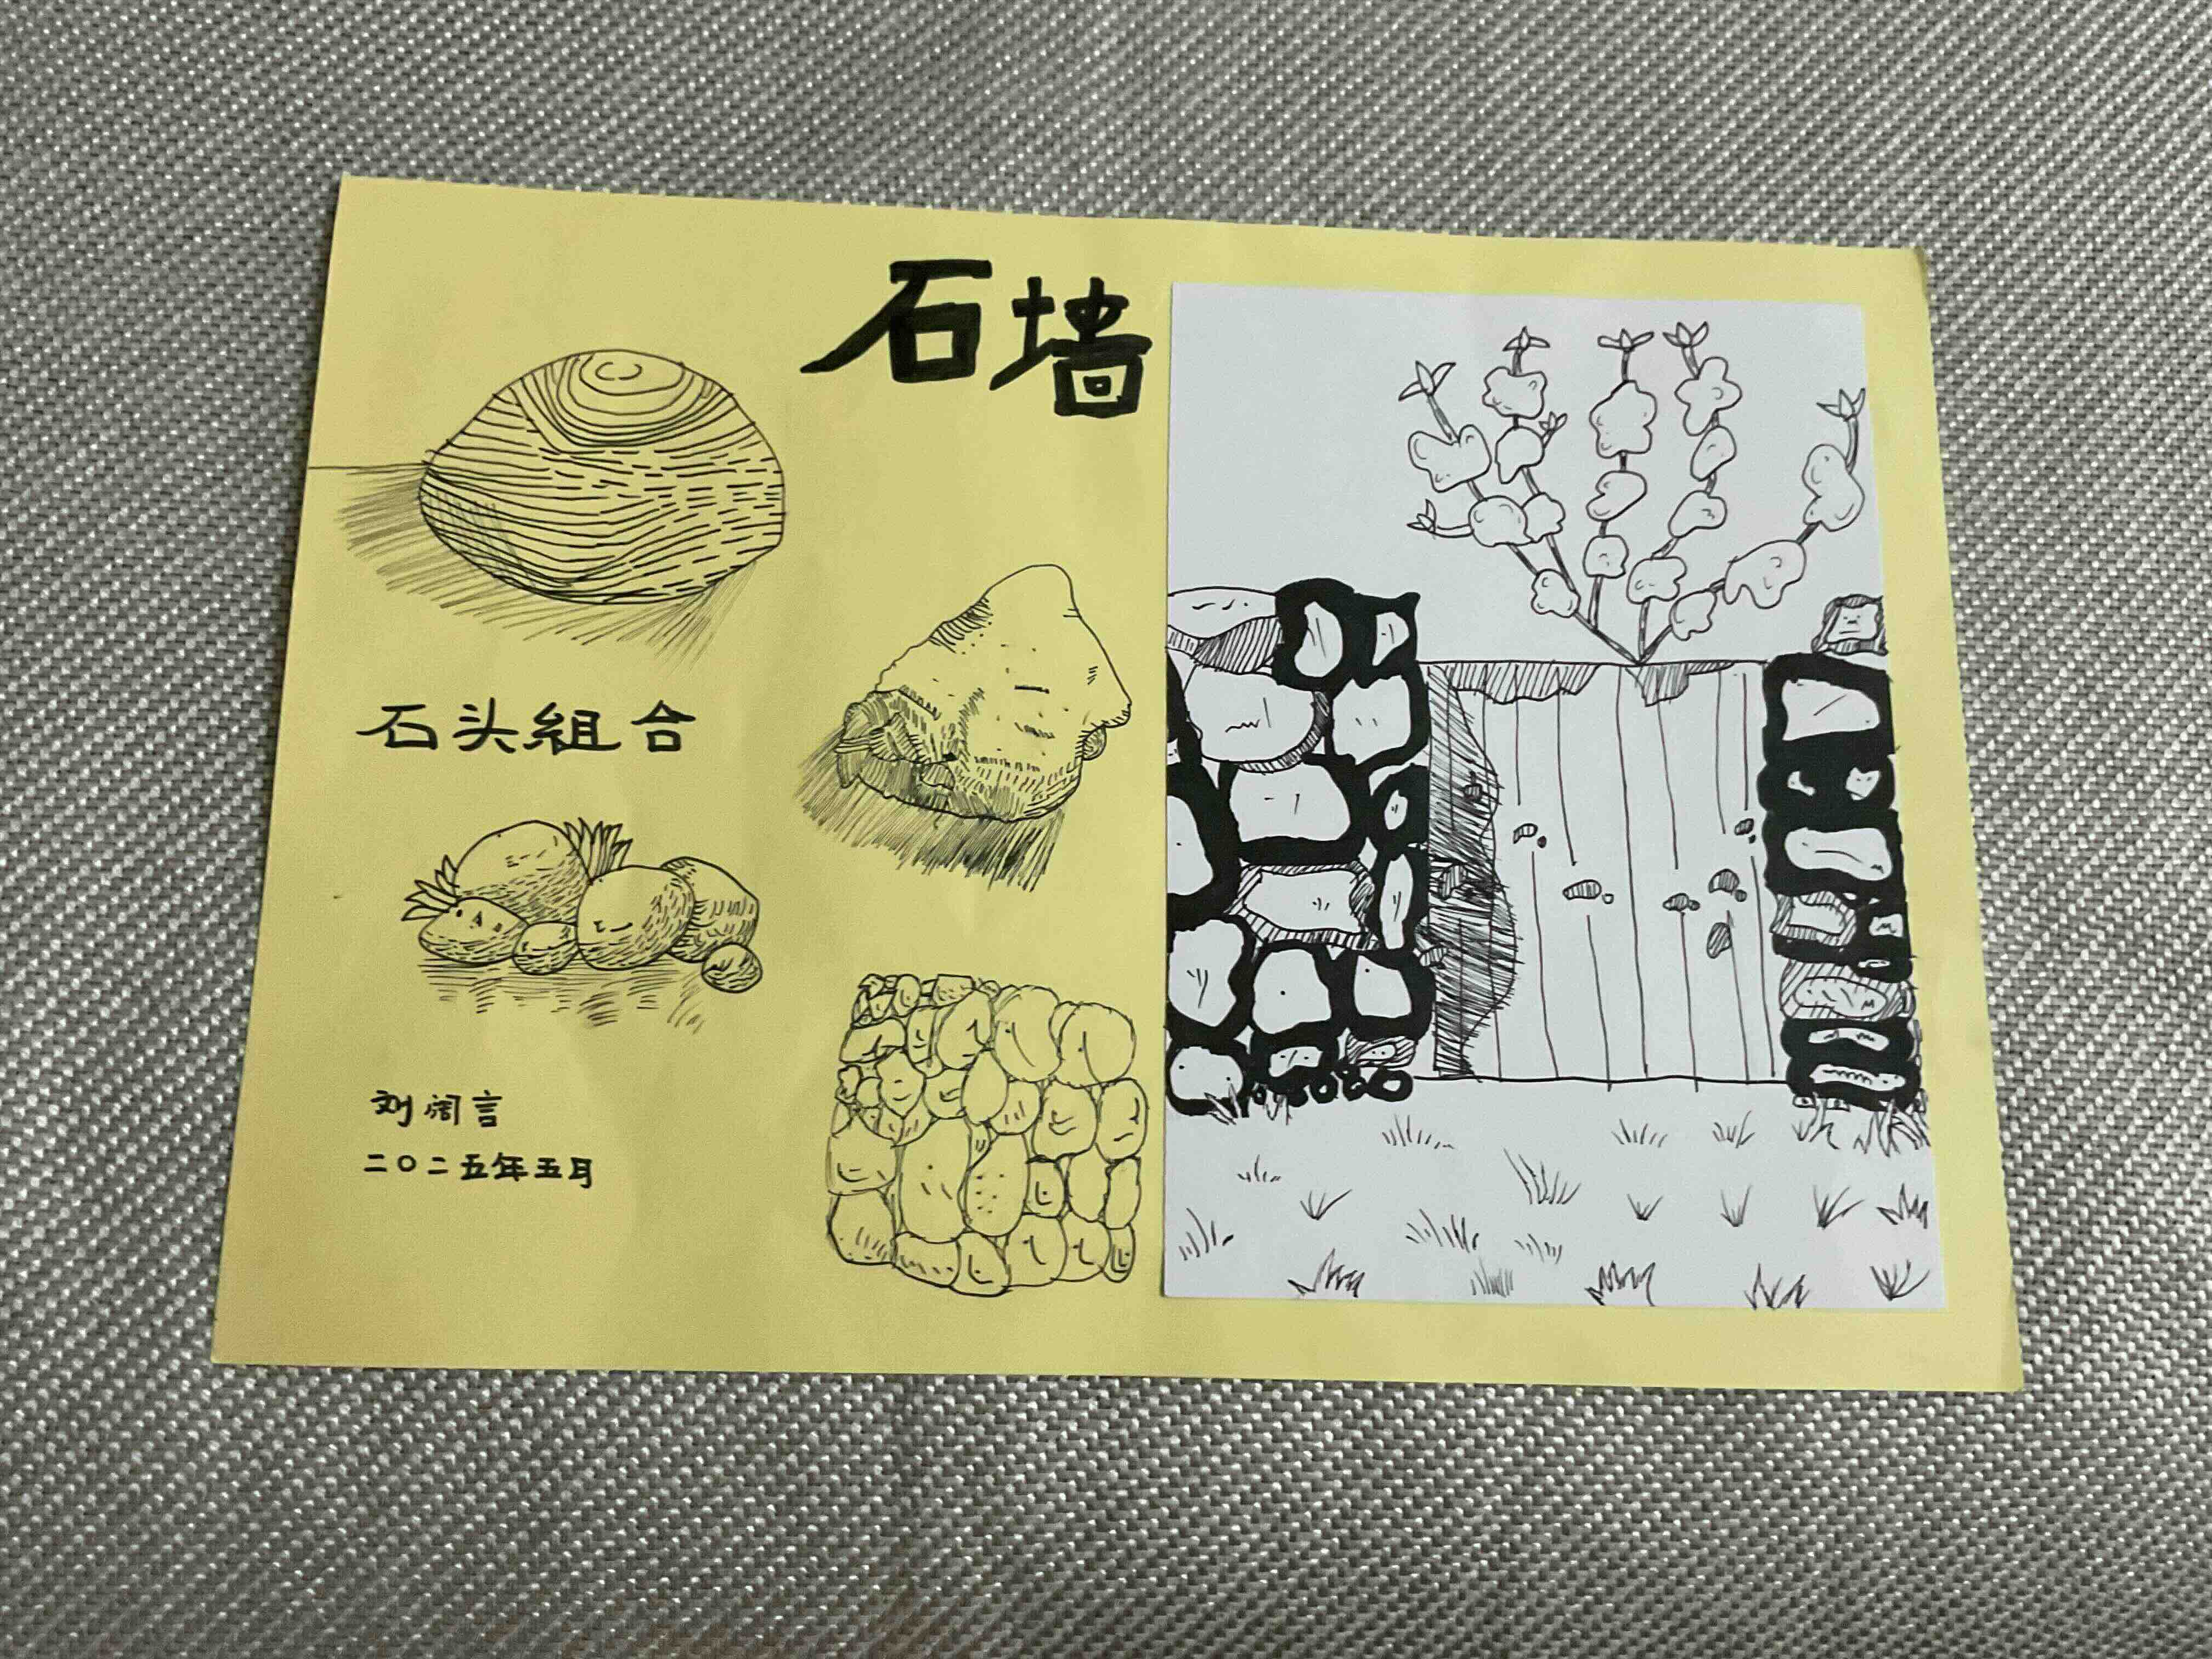 石墙
石头組合
刘阔言
二〇二五年五月